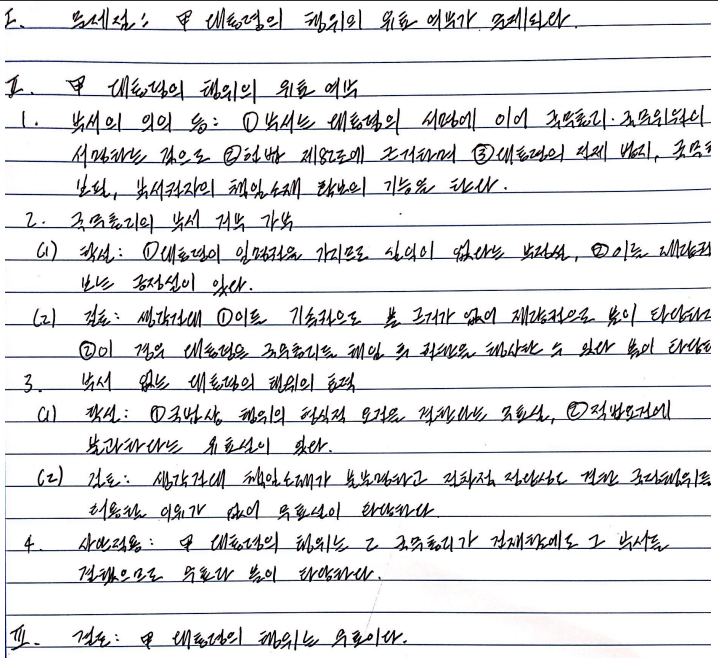 I. 문제점: 甲 대통령의 행위의 유효 여부가 문제된다.
II. 甲 대통령의 행위의 유효 여부
1. 부서의 의의 등: ① 부서는 대통령의 서명에 이어 국무총리·국무위원이
서명하는 것으로 ② 헌법 제82조에 근거하며 ③ 대통령의 전제 방지, 국무
보필, 부서권자의 책임소재 확보의 기능을 한다.
2. 국무총리의 부서 거부 가부
(1) 학설: ① 대통령이 임명권을 가지므로 실익이 없다는 부정설, ② 이를 재량적
보는 긍정설이 있다.
(2) 검토: 생각건대 ① 이를 기속적으로 볼 근거가 없어 재량적으로 봄이 타당하고
② 이 경우 대통령은 국무총리를 해임 후 권한을 행사할 수 있다 봄이 타당
3. 부서 없는 대통령의 행위의 효력
(1) 학설: ① 국법상 행위의 형식적 요건을 결한다는 무효설, ② 적법요건에
불과하다는 유효설이 있다.
(2) 검토: 생각건대 책임소재가 불분명하고 절차적 정당성도 결한 국정행위를
허용할 이유가 없어 무효설이 타당하다.
4. 사안적용: 甲 대통령의 행위는 乙 국무총리가 건재함에도 그 부서를
결했으므로 무효라 봄이 타당하다.
III. 결론: 甲 대통령의 행위는 무효이다.